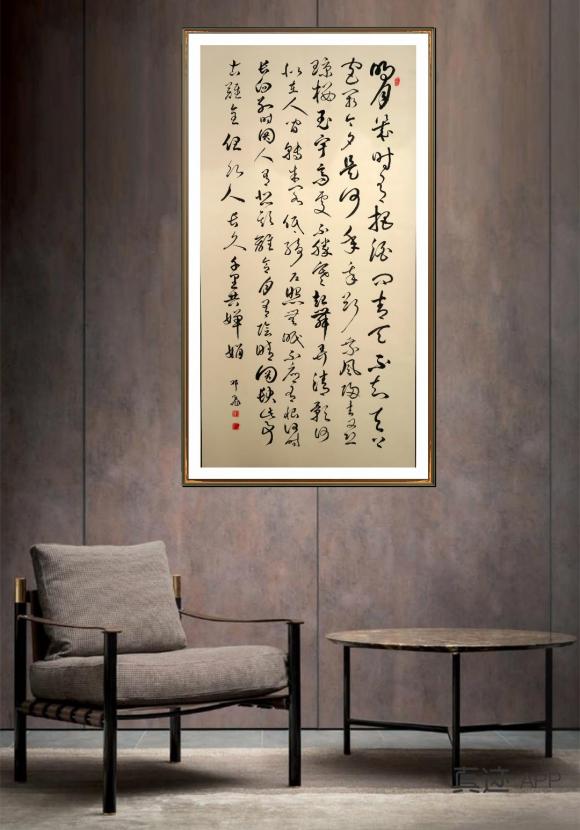 明月幾时有把酒问青天不知天上
宫阙今夕是何年我欲乘风归去又恐
瓊楼玉宇高处不胜寒起舞弄清影何
似在人间转朱阁低绮户照无眠不应有恨何时
长向别时圆人有悲欢離合月有陰晴圆缺此事
古難全但愿人长久千里共嬋娟
真迹 APP